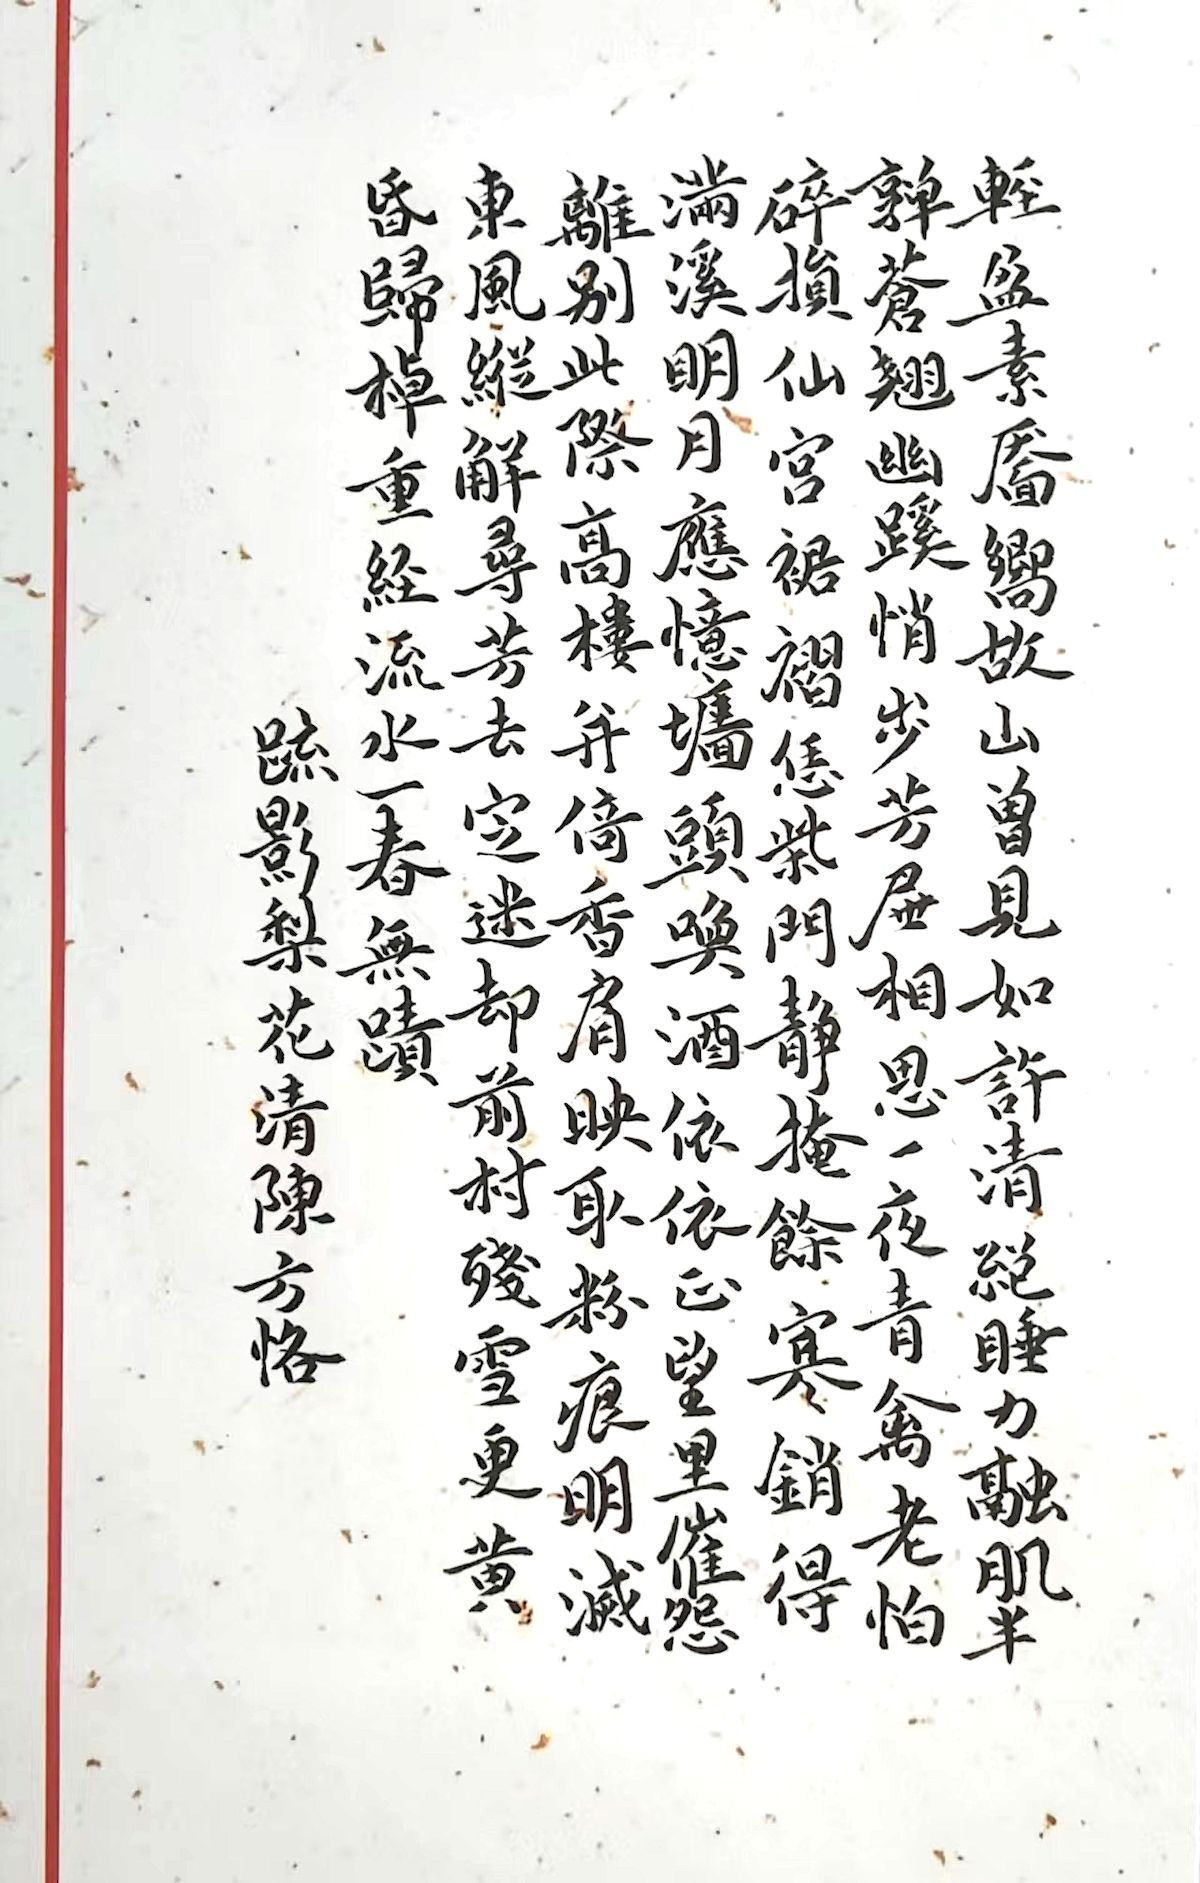 輕盈素靨嚮故山曾見如許清絕睡力融肌半
亸蒼翹幽蹊悄步芳屧相思一夜青禽老怕
碎損仙宮裙褶恁柴門靜掩餘寒銷得
滿溪明月應憶墻頭喚酒依依正望里催怨
離別此際高樓并倚香肩映取粉痕明滅
東風縱解尋芳去定迷却前村殘雪更黃
昏歸棹重經流水一春無蹟
疏影梨花清陳方恪